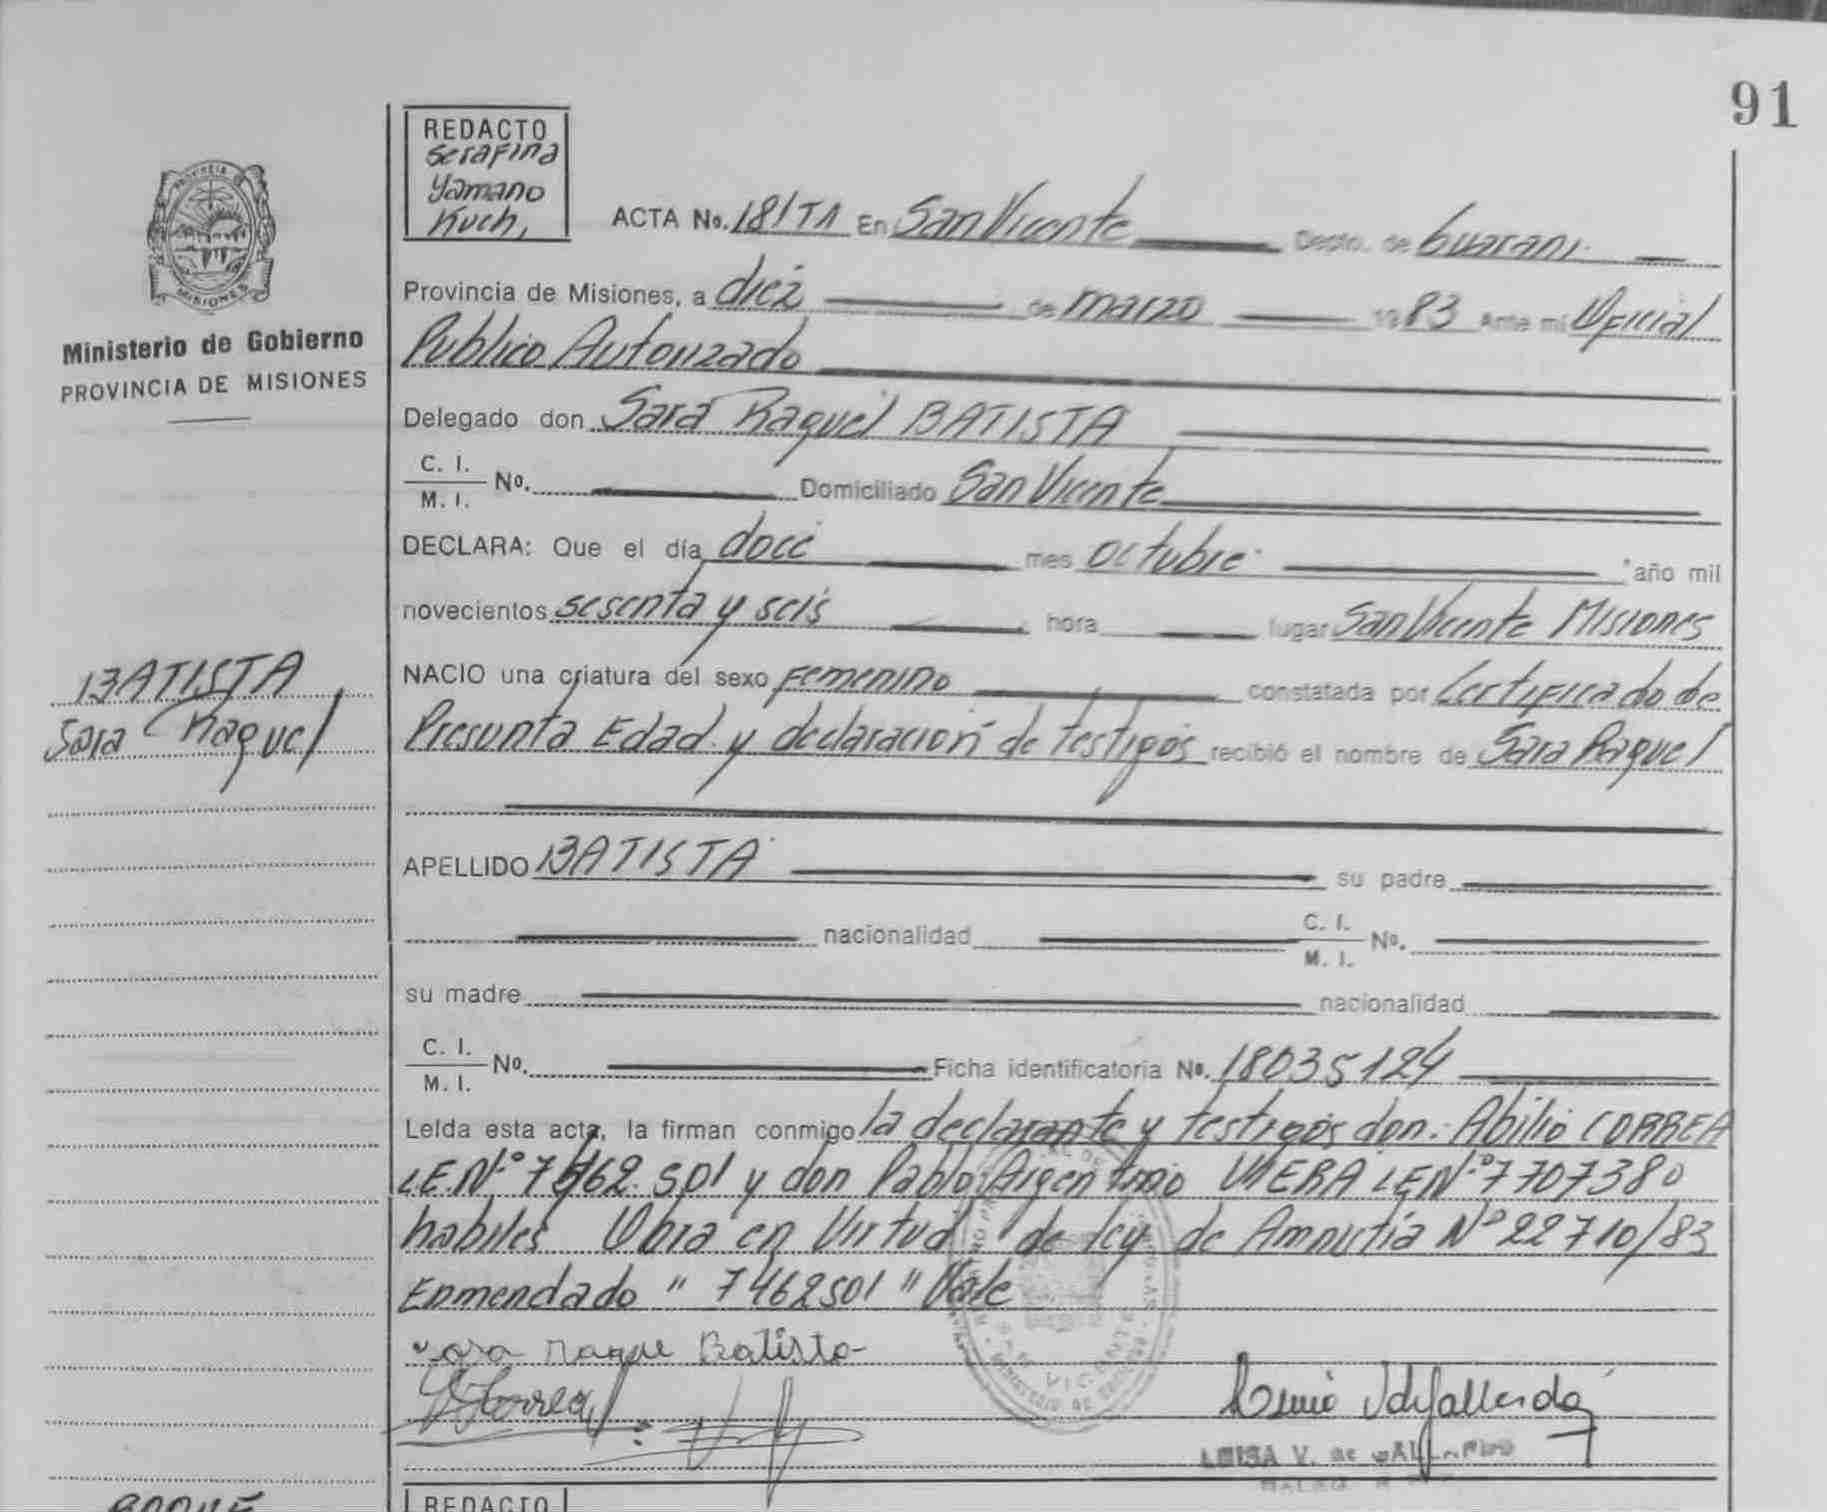 91
REDACTO
Serafina
Yamano
Kuch,
ACTA No. 181 TA En San Vicente Depto. de Guarani
Provincia de Misiones, a diez de marzo 1983 Ante mi Oficial
Publico Autorizado
Delegado don Sara Raquel BATISTA
C. I.
M. I. No. Domiciliado San Vicente
DECLARA: Que el día doce mes octubre año mil
novecientos sesenta y seis hora lugar San Vicente Misiones
NACIO una criatura del sexo Femenino constatada por Certificado de
Presunta Edad y declaración de testigos recibió el nombre de Sara Raquel
APELLIDO BATISTA su padre
nacionalidad C. I.
M. I. No.
su madre nacionalidad
C. I.
M. I. No. Ficha identificatoria No. 18035124
Leída esta acta, la firman conmigo la declarante y testigos don: Abilio CORREA
LE.Nº 7462.501 y don Pablo Argentino VIERA LENº 7707380
habiles Obra en Virtud de ley de Amnistia Nº 22710/83
Enmendado " 7462501 " Vale
Sara Raque Batista
Correa
LUISA V. de
MISIONES
Ministerio de Gobierno
PROVINCIA DE MISIONES
BATISTA
Sara Raquel
REDACTO